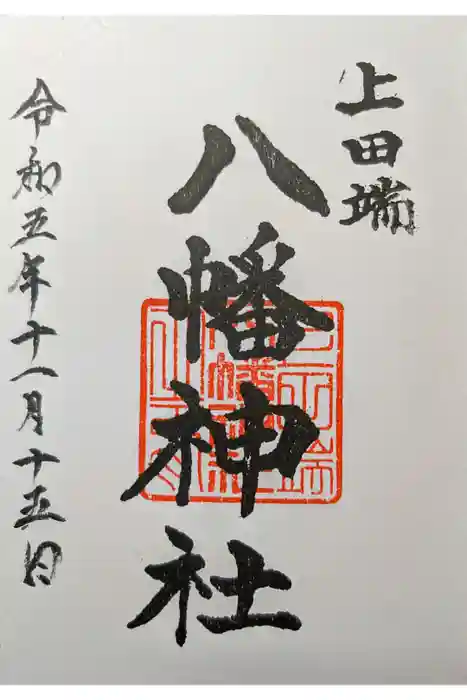 上田端
八幡神社
令和五年十一月十五日